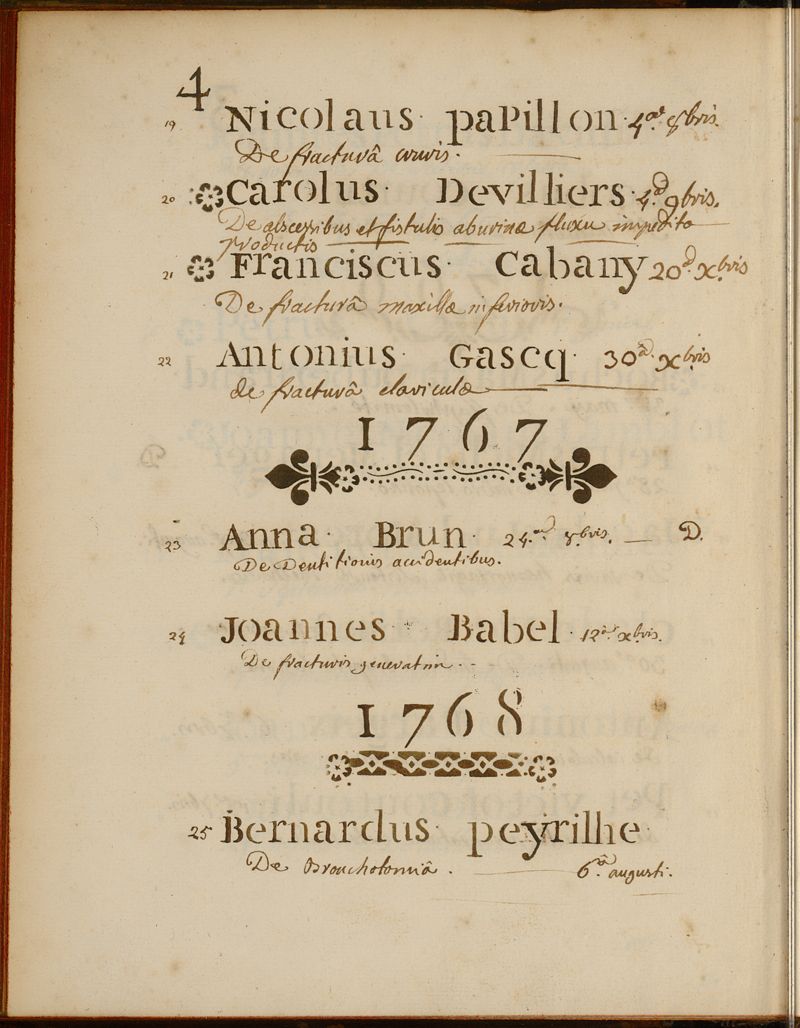 4
19 Nicolaus papillon 4ª 8bris.
De fracturâ cruris.
20 Carolus Devilliers 4.ª 9bris.
De abscessibus et fistulis ab urinæ fluxu impedito
productis
21 Franciscus Cabany 20ª. xbris
De fracturâ maxillæ inferioris.
22 Antonius Gascq. 30ª. xbris
de fracturâ claviculæ
1767
23 Anna Brun 24.ª 8bris. — D.
De Dentitionis accidentibus.
24 Joannes Babel 12ª xbris.
De fracturis generatim
1768
25 Bernardus peyrilhe
De Bronchotomiâ. 6.ª augusti.